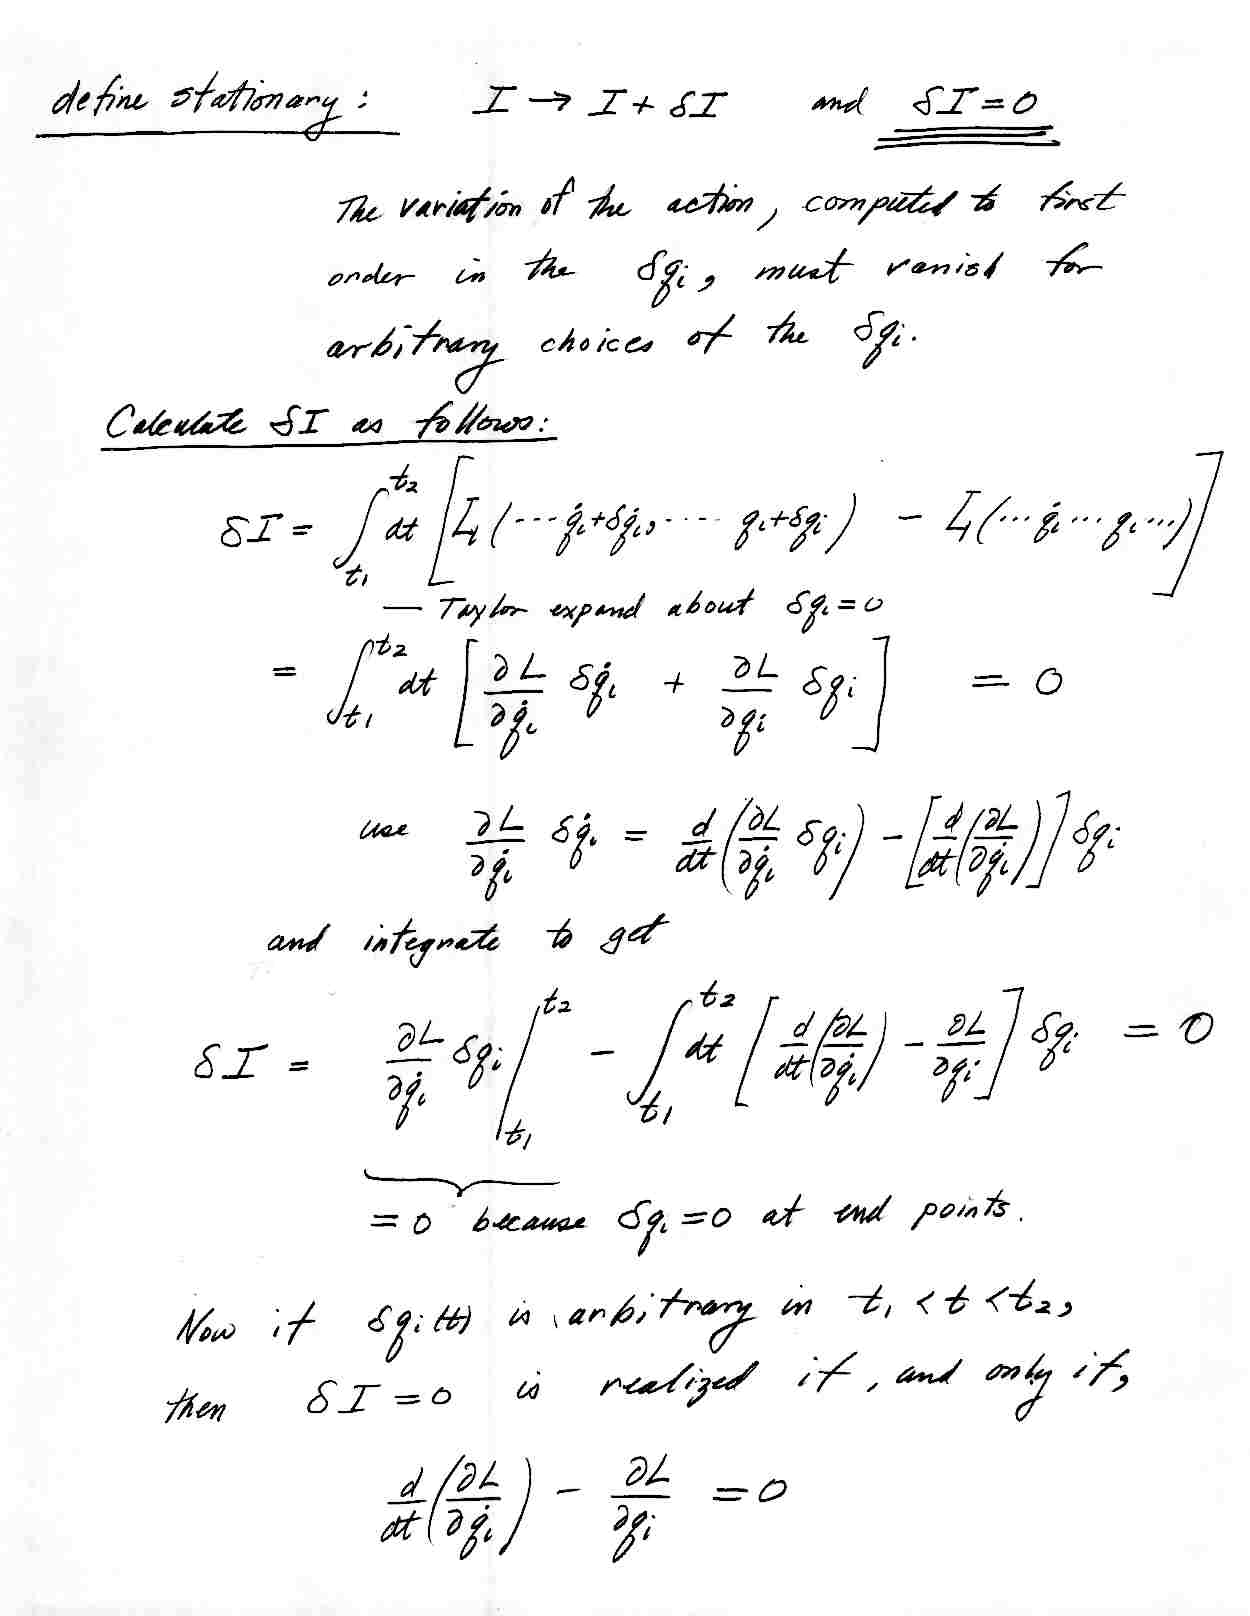 define stationary: I → I + δI and δI = 0
The variation of the action, computed to first
order in the δqᵢ, must vanish for
arbitrary choices of the δqᵢ.
Calculate δI as follows:
δI = ∫_{t₁}^{t₂} dt [L(··· q̇ᵢ+δq̇ᵢ, ···· qᵢ+δqᵢ) − L(··· q̇ᵢ ··· qᵢ ···)]
— Taylor expand about δqᵢ = 0
= ∫_{t₁}^{t₂} dt [∂L/∂q̇ᵢ δq̇ᵢ + ∂L/∂qᵢ δqᵢ] = 0
use ∂L/∂q̇ᵢ δq̇ᵢ = d/dt(∂L/∂q̇ᵢ δqᵢ) − [d/dt(∂L/∂q̇ᵢ)] δqᵢ
and integrate to get
δI = ∂L/∂q̇ᵢ δqᵢ |_{t₁}^{t₂} − ∫_{t₁}^{t₂} dt [d/dt(∂L/∂q̇ᵢ) − ∂L/∂qᵢ] δqᵢ = 0
= 0 because δqᵢ = 0 at end points.
Now if δqᵢ(t) is arbitrary in t₁ < t < t₂,
then δI = 0 is realized if, and only if,
d/dt(∂L/∂q̇ᵢ) − ∂L/∂qᵢ = 0